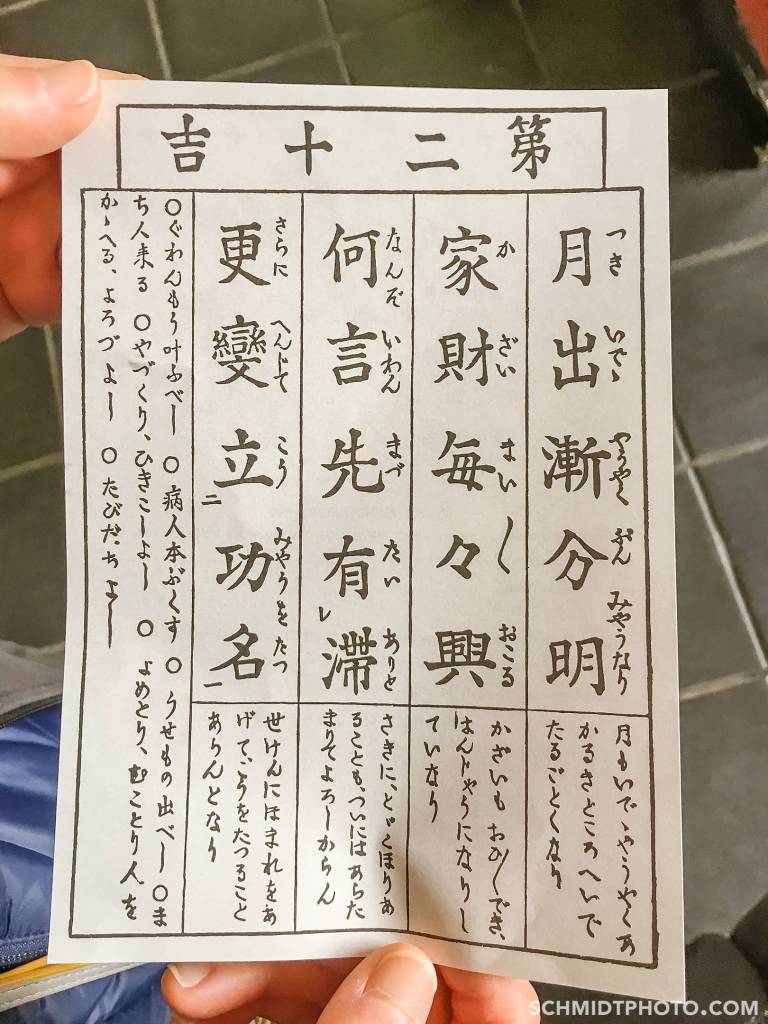 第二十吉
つき いでゝ やうやく ぶん みやうなり
月出漸分明
月もいでゝやうやくあ
かるきところへいで
たるごとくなり
か ざい まい〱 おこる
家財毎々興
かざいも おひ〱でき、
はんじやうになりし
ていなり
なんぞ いわん まづ たい ありと
何言先有レ滯
さきに、とゞこほりあ
ることも、ついにはあらた
まりてよろしからん
さらに へんじて こう みやうを たつ
更變立二功名一
せけんにほまれをあ
げて、こうをたつること
あらんとなり
〇ぐわんもう叶ふべし 〇病人本ぶくす 〇うせもの出べし 〇ま
ち人来る 〇やづくり、ひきこしよし 〇よめとり、むことり人を
かゝへる、よろづよし 〇たびだちよし
SCHMIDTPHOTO.COM